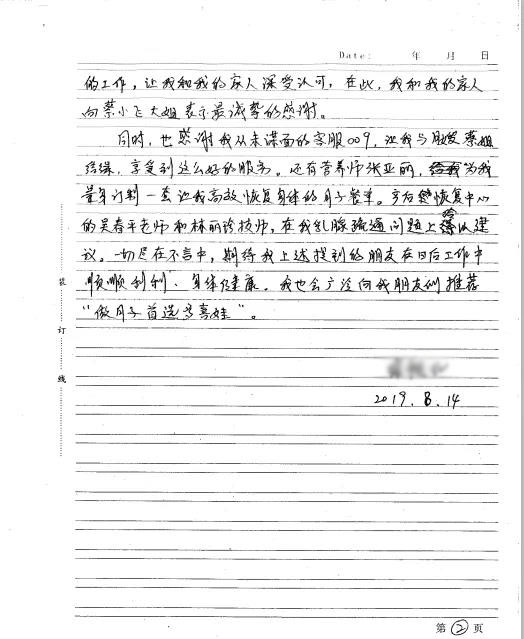 Date: 年 月 日
的工作，让我和我的家人深受认可，在此，我和我的家人
向蔡小飞大姐表示最诚挚的感谢。
同时，也感谢我从未谋面的客服009，让我与月嫂蔡姐
结缘，享受到这么好的服务。还有营养师张亚丽，为我
量身订制一套让我高效恢复身体的月子餐单。产后恢复中心
的吴春平老师和林丽诊技师，在我乳腺疏通问题上给以建
议。一切尽在不言中，期待我上述提到的朋友在日后工作中
顺顺利利、身体健康。我也会广泛向我朋友们推荐
“做月子首选喜娃”。
2019.8.14
装
订
线
第 2 页